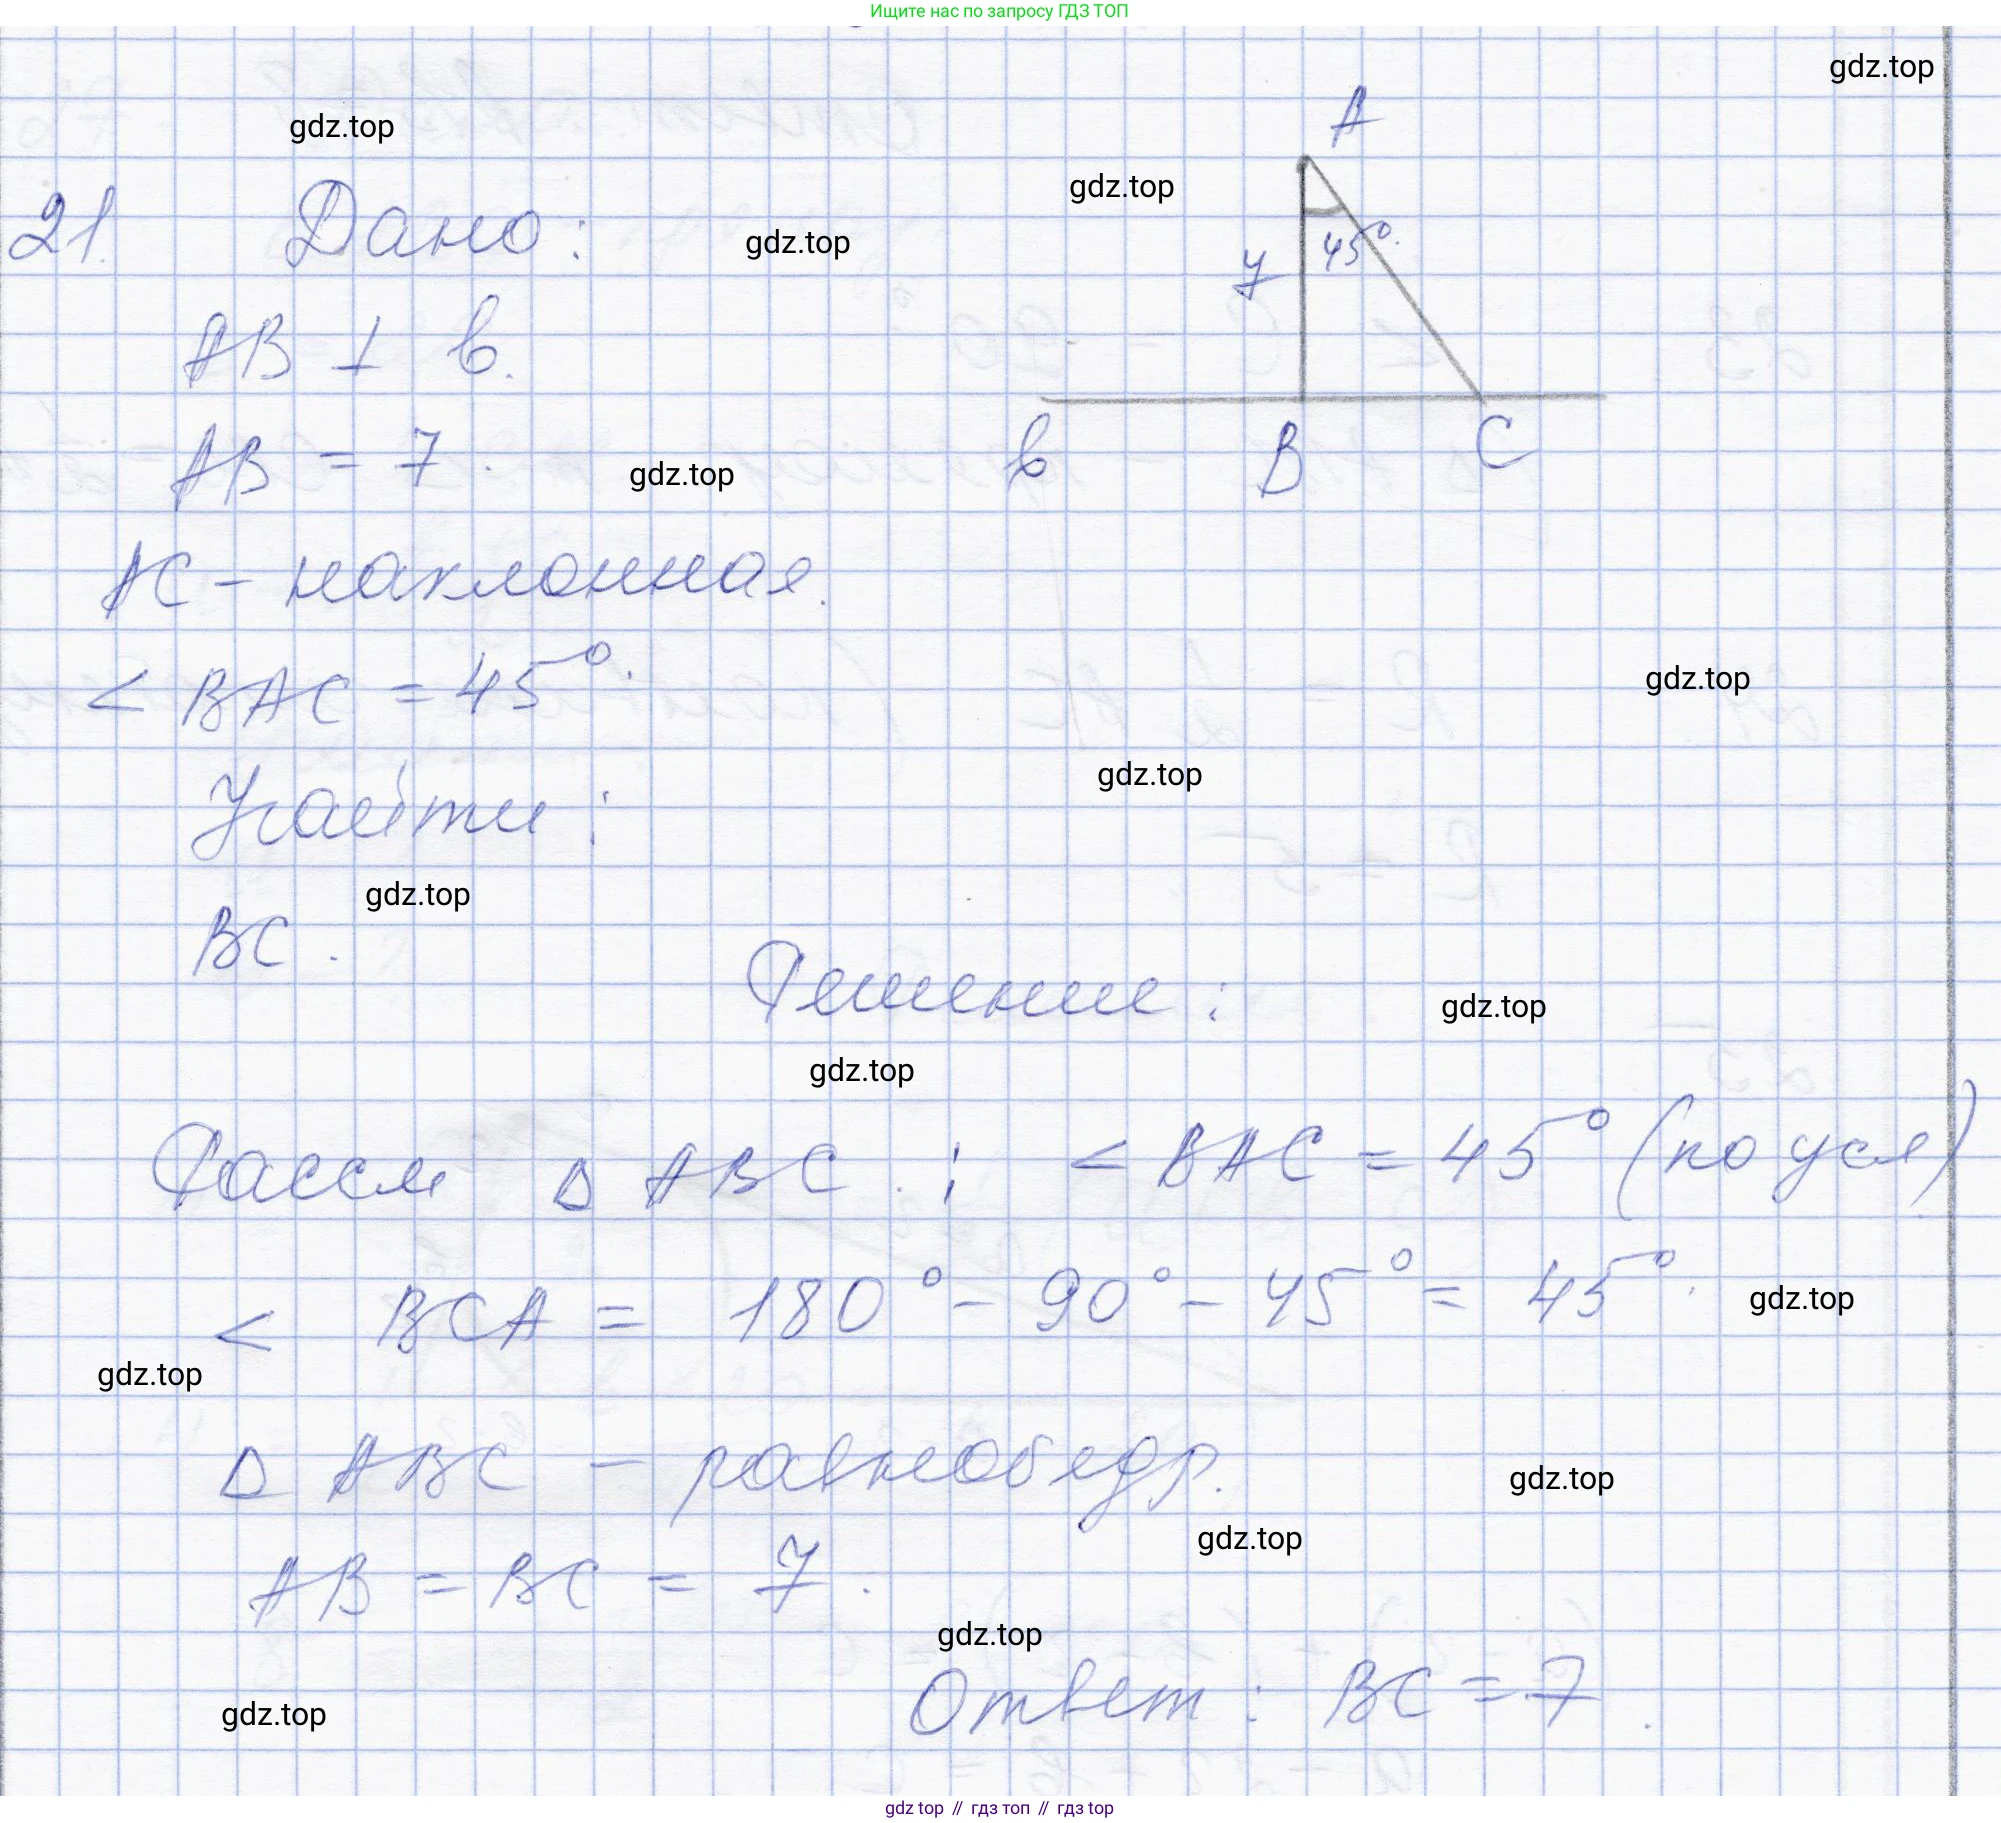 Ищите нас по запросу ГДЗ ТОП
gdz.top
gdz.top
A
gdz.top
21. Дано:
gdz.top
45°.
7
AB ⊥ b.
AB = 7.
gdz.top
b B C
AC - наклонная.
< BAC = 45°.
gdz.top
gdz.top
Найти:
gdz.top
BC.
Решение:
gdz.top
gdz.top
Рассм △ ABC. ; < BAC = 45° (по усл)
< BCA = 180° - 90° - 45° = 45°.
gdz.top
gdz.top
△ ABC - равнобедр.
gdz.top
gdz.top
AB = BC = 7.
gdz.top
Ответ: BC = 7.
gdz.top
gdz top // гдз топ // гдз top